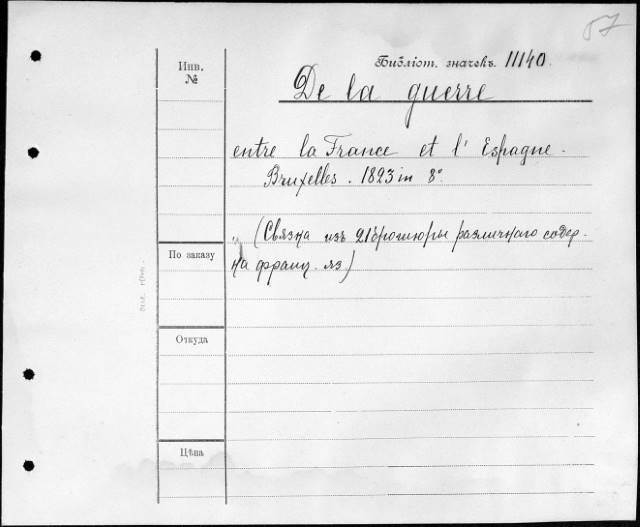 57
Инв.
№
Библіот. значекъ. 11140.
De la guerre
entre la France et l'Espagne.
Bruxelles. 1823 in 8°.
(Связка изъ 21 брошюры различнаго содер.
на франц. яз.)
По заказу
Откуда
Цѣна